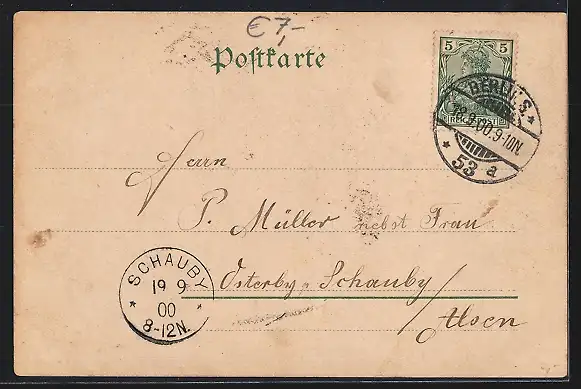 €7,-
Postkarte
5 5
REICHSPOST
BERLIN S.
9-10N
* 53 a *
Herrn
P. Müller nebst Frau
Osterby, Schauby
/Alsen
SCHAUBY
19 9
00
8-12N.